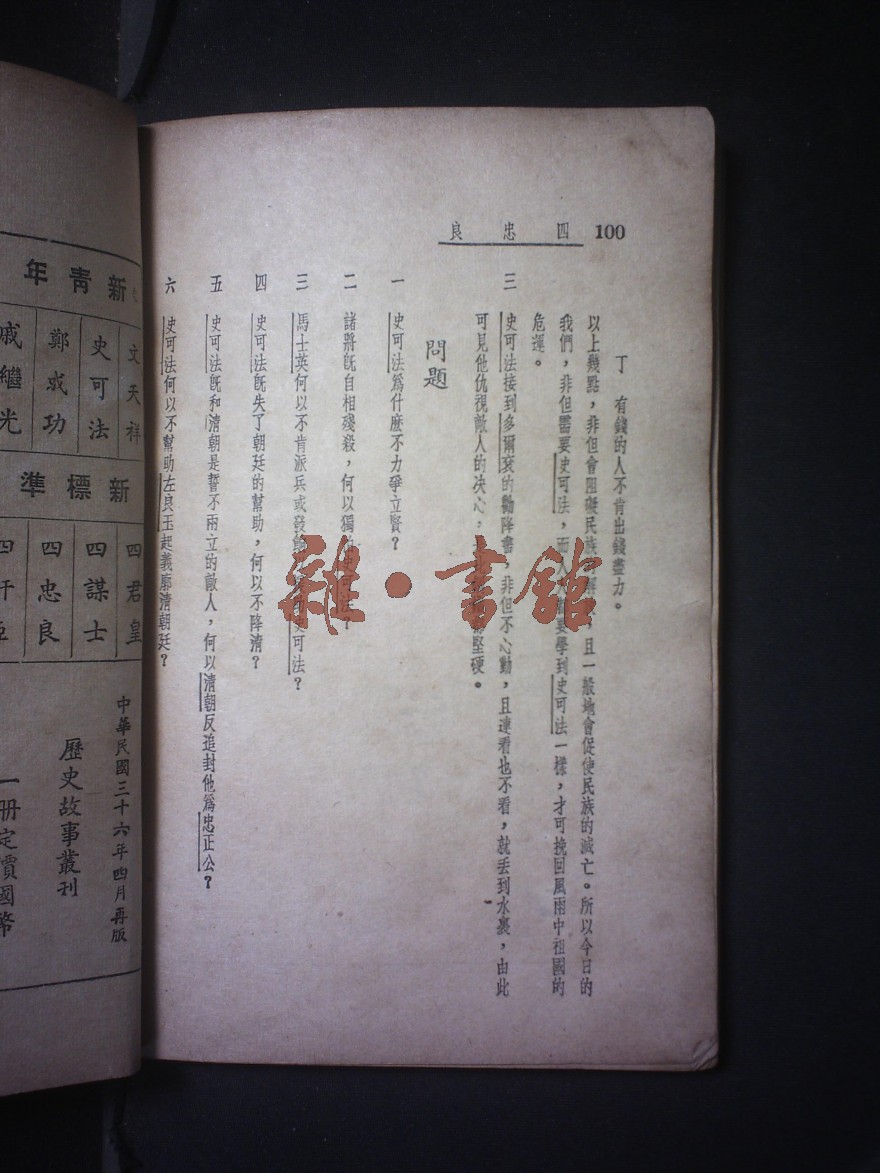 100 四忠良
丁 有錢的人不肯出錢盡力。
以上幾點，非但會阻礙民族 且一般地會促使民族的滅亡。所以今日的
我們，非但需要史可法，而人 要學到史可法一樣，才可挽回風雨中祖國的
危運。
三 史可法接到多爾袞的勸降書，非但不心動，且連看也不看，就丢到水裏，由此
可見他仇視敵人的决心， 堅硬。
問題
一 史可法爲什麽不力爭立賢？
二 諸將旣自相殘殺，何以獨
三 馬士英何以不肯派兵或發 史可法？
四 史可法旣失了朝廷的幫助，何以不降清？
五 史可法旣和清朝是誓不兩立的敵人，何以清朝反追封他爲忠正公？
六 史可法何以不幫助左良玉起義廓清朝廷？
雜·書館
新青年
文天祥
史可法
鄭成功
戚繼光
新標準
四君皇
四謀士
四忠良
四奸臣
中華民國三十六年四月再版
歷史故事叢刊
一册定價國幣